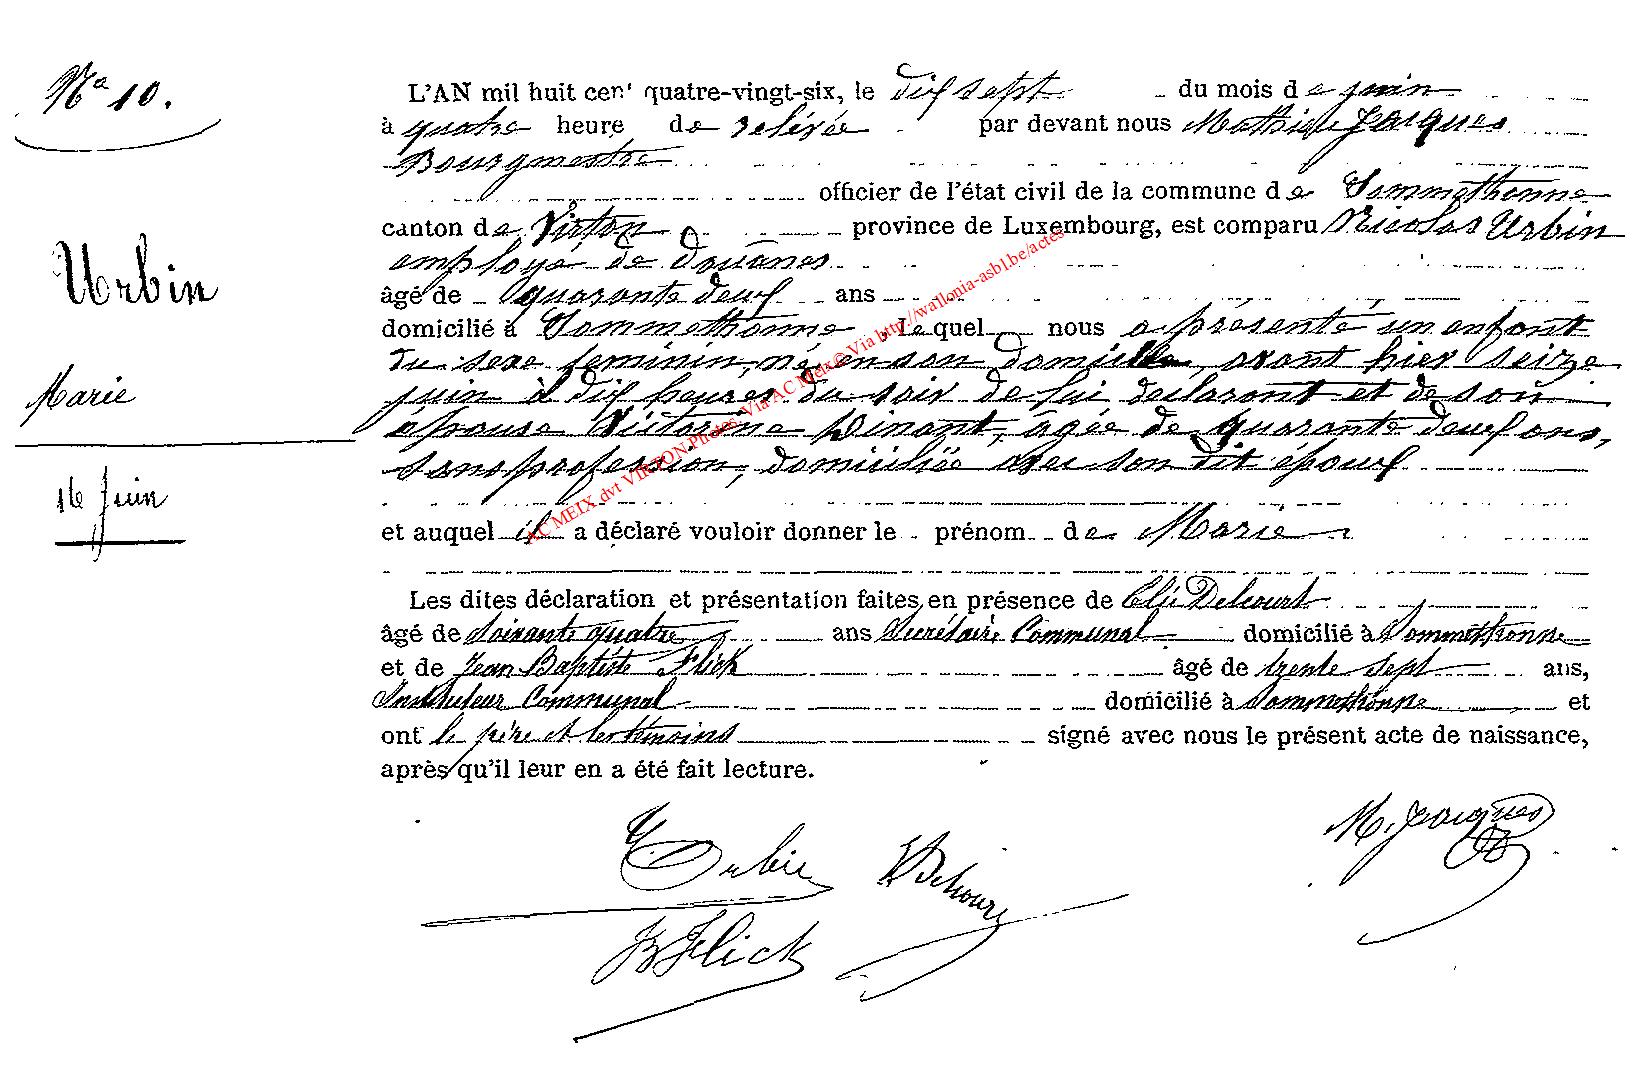 Nº 10.
Urbin
Marie
16 Juin
L'AN mil huit cent quatre-vingt-six, le dix sept du mois de juin
à quatre heure de relevée par devant nous Mathieu Jacques
Bourgmestre
officier de l'état civil de la commune de Sommethonne
canton de Virton province de Luxembourg, est comparu Nicolas Urbin
employé de douanes
âgé de quarante deux ans
domicilié à Sommethonne, lequel nous a présenté un enfant
du sexe feminin, né en son domicile, avant hier seize
juin à dix heures du soir de lui déclarant et de son
épouse Victorine Dinant, âgée de quarante deux ans,
sans profession, domiciliée avec son dit époux
et auquel il a déclaré vouloir donner le prénom de Marie
Les dites déclaration et présentation faites en présence de Elie Delcourt
âgé de soixante quatre ans Secrétaire Communal domicilié à Sommethonne
et de Jean Baptiste Flick âgé de trente sept ans,
Instituteur Communal domicilié à Sommethonne et
ont le père et les témoins signé avec nous le présent acte de naissance,
après qu'il leur en a été fait lecture.
M. Jacques
Urbin Delcourt
JB Flick
AC MEIX dvt VIRTON Photos Via AC Meix© Via http://wallonia-asbl.be/actes